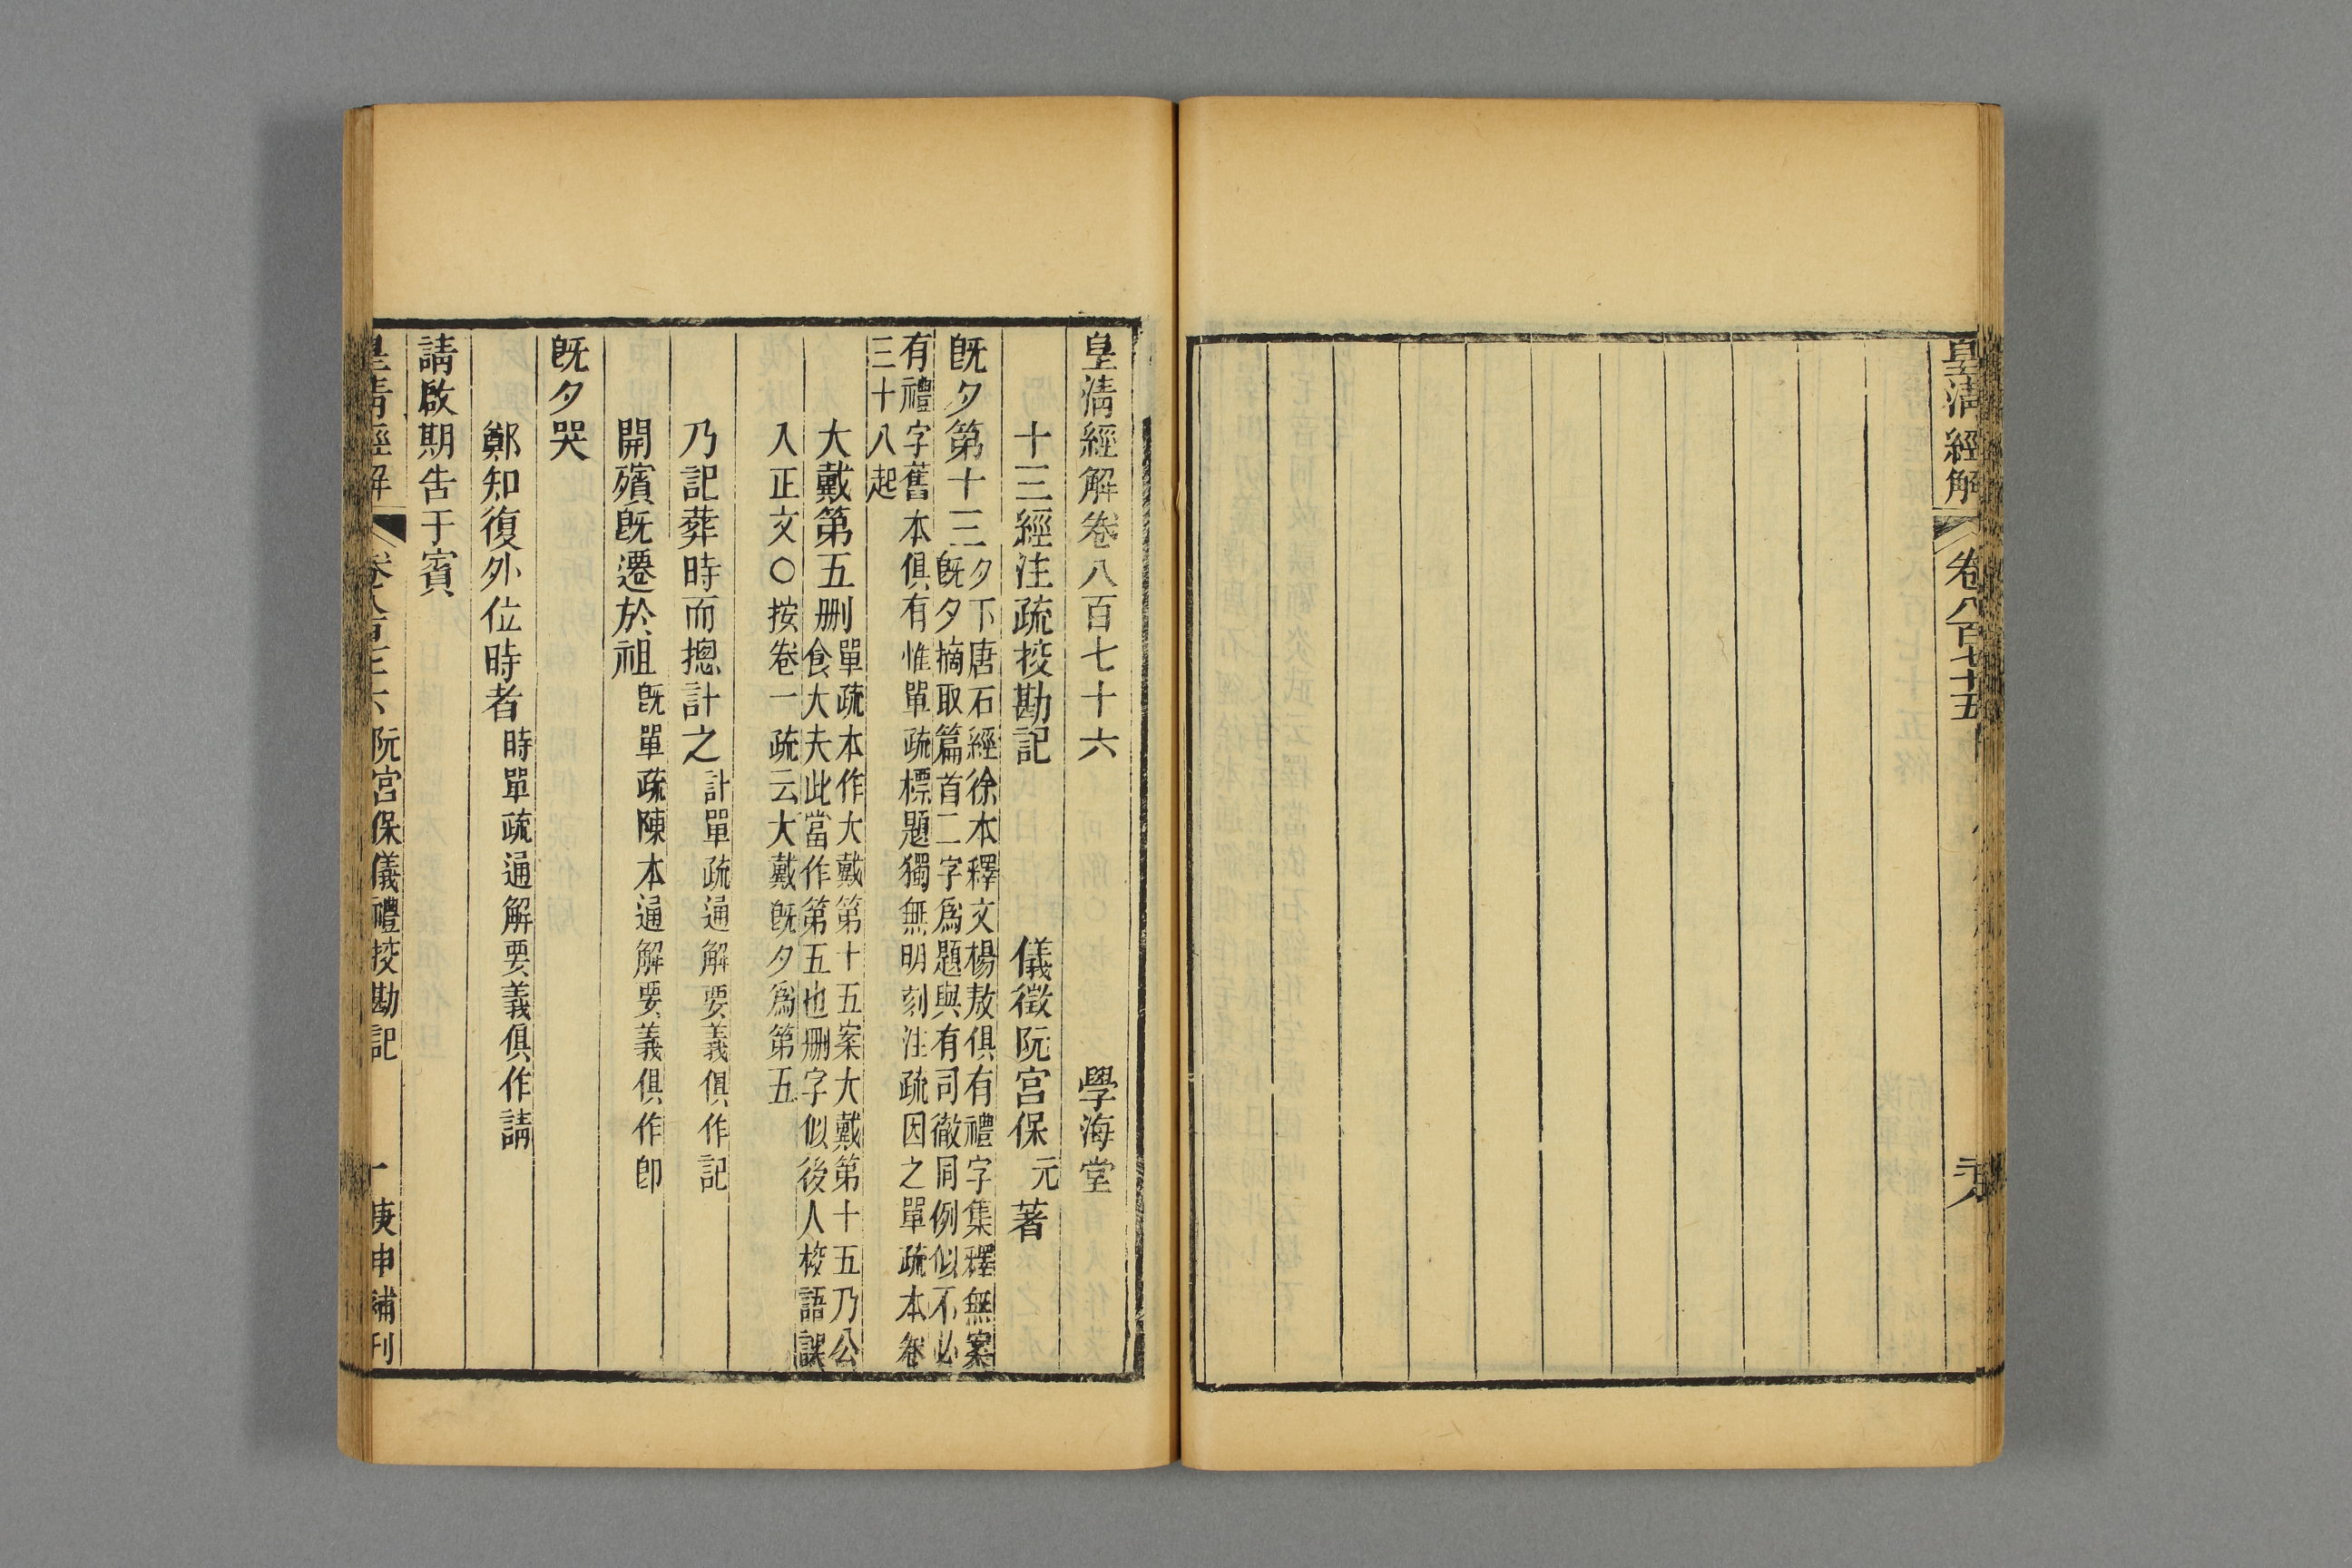 皇清經解
卷八百七十五
皇清經解卷八百七十六
學海堂
十三經注疏挍勘記
儀徵阮宮保元著
旣夕第十三
夕下唐石經徐本釋文楊敖俱有禮字集釋無案
旣夕摘取篇首二字爲題與有司徹同例似不必
有禮字舊本俱有惟單疏標題獨無明刻注疏因之單疏本卷
三十八起
大戴第五刪
單疏本作大戴第十五案大戴第十五乃公
食大夫此當作第五也刪字似後人校語誤
入正文〇按卷一疏云大戴旣夕爲第五
乃記葬時而摠計之
計單疏通解要義俱作記
開殯旣遷於祖
旣單疏陳本通解要義俱作卽
旣夕哭
鄭知復外位時者
時單疏通解要義俱作請
請啟期告于賓
皇清經解
卷八百七十六
阮宮保儀禮挍勘記
一
庚申補刊